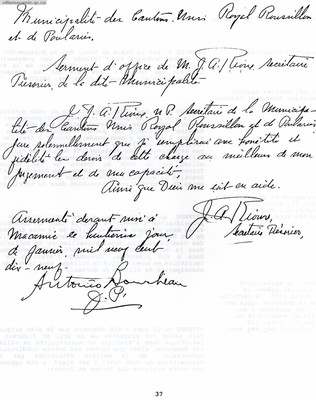 Municipalité des Cantons-Unis Royal Roussillon
et de Poularies.
Serment d'office de M. J. A. Rioux, secrétaire
Trésorier, de la dite Municipalité
Je J. A. Rioux, secrétaire de la Municipa-
lité des Cantons Unis Royal Roussillon et de Poularies,
jure solennellement que je remplirai avec honnêteté et
fidélité les devoirs de cette charge au meilleur de mon
jugement et de ma capacité,
Ainsi que Dieu me soit en aide.
Assermenté devant moi à
Macamic ce huitième jour
de Janvier, mil neuf cent
dix-neuf.
J. A. Rioux,
Secrétaire Trésorier,
J. P.
37